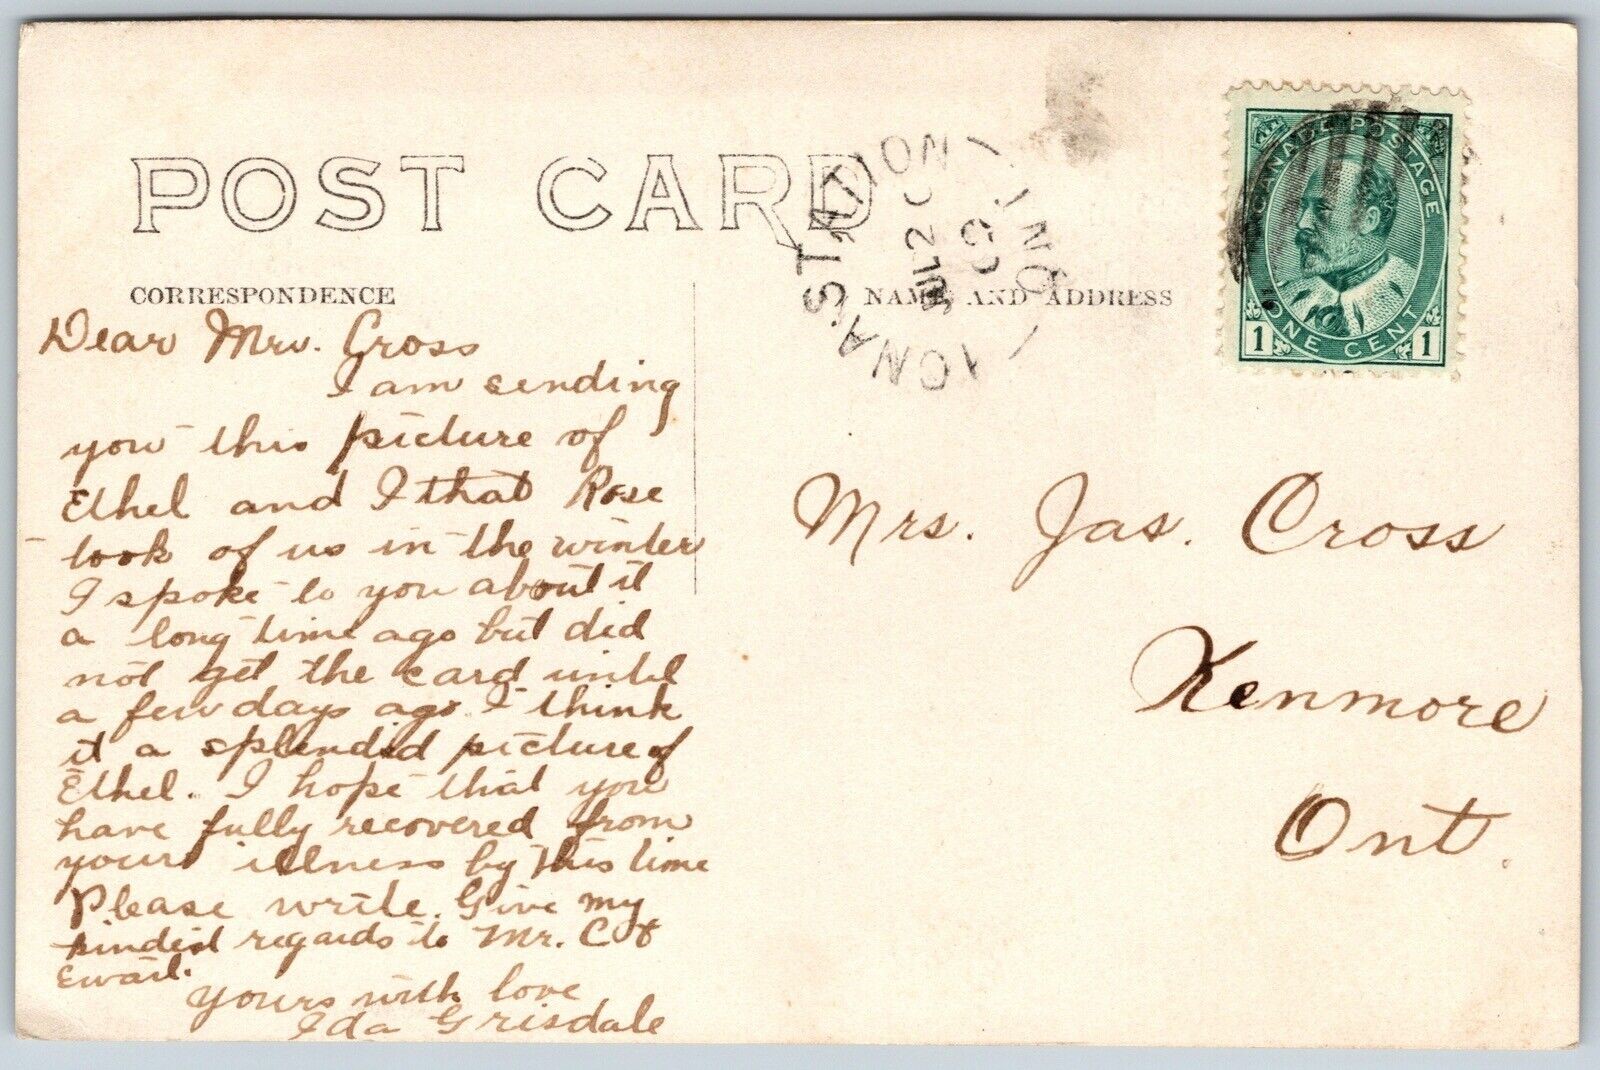 POST CARD
CORRESPONDENCE
NAME AND ADDRESS
IONA STATION
ONT.
JUL 20
09
CANADA POSTAGE
ONE CENT
1 1
Dear Mrs. Cross
I am sending
you this picture of
Ethel and I that Rose
took of us in the winter
I spoke to you about it
a long time ago but did
not get the card until
a few days ago. I think
it a splendid picture of
Ethel. I hope that you
have fully recovered from
your illness by this time
Please write. Give my
kindest regards to Mr. C &
Yours with love
Ida Grisdale
Mrs. Jas. Cross
Kenmore
Ont.